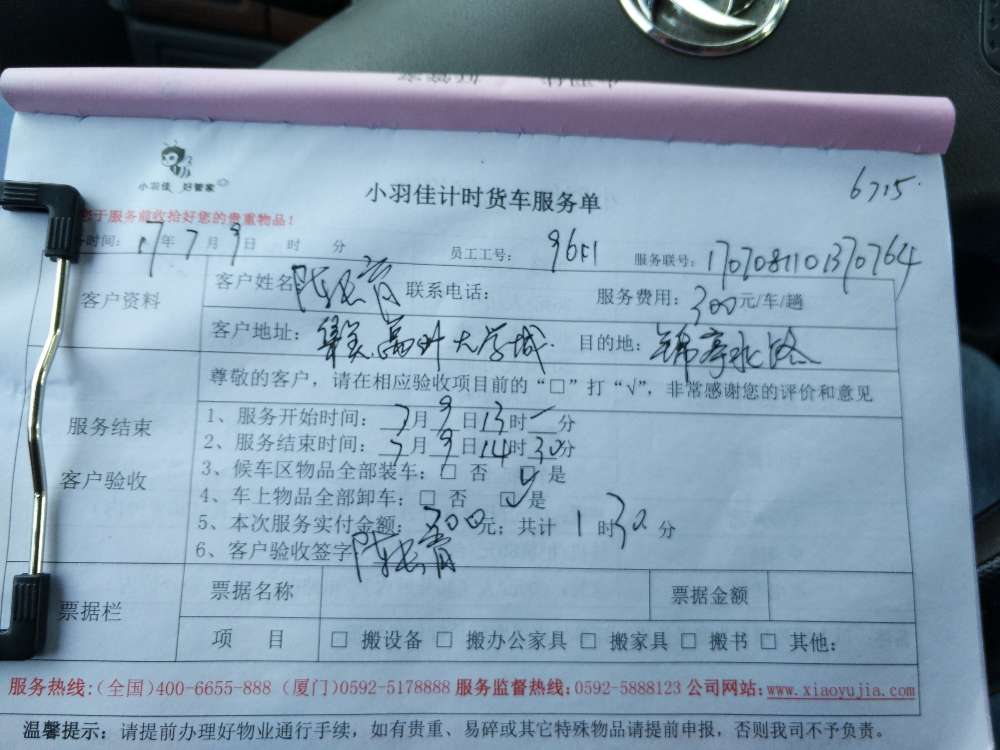 小羽佳 好管家
小羽佳计时货车服务单
6715
于服务前收拾好您的贵重物品!
务时间: 17年7月9日 时 分 员工工号: 9651 服务联号: 1707081101370764
客户资料
客户姓名 陈长育 联系电话: 服务费用: 300元/车/趟
客户地址: 集美 大学城 目的地: 锦亭北路
服务结束
客户验收
尊敬的客户,请在相应验收项目前的“□”打“√”,非常感谢您的评价和意见
1、服务开始时间: 7月9日13时一分
2、服务结束时间: 7月9日14时30分
3、候车区物品全部装车: □ 否 ☑ 是
4、车上物品全部卸车: □ 否 ☑ 是
5、本次服务实付金额: 300元; 共计 1 时30 分
6、客户验收签字 陈长育
票据栏
票据名称 票据金额
项 目 □ 搬设备 □ 搬办公家具 □ 搬家具 □ 搬书 □ 其他:
服务热线:(全国)400-6655-888 (厦门)0592-5178888 服务监督热线:0592-5888123 公司网站:www.xiaoyujia.com
温馨提示: 请提前办理好物业通行手续, 如有贵重、易碎或其它特殊物品请提前申报, 否则我司不予负责。